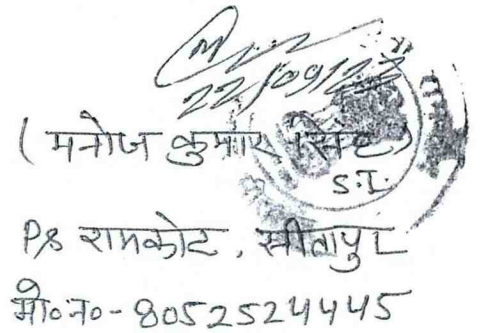 22/09/22
( मनोज कुमार सिंह )
S.I.
PS रामकोट, सीतापुर
मो०न०- 8052524445